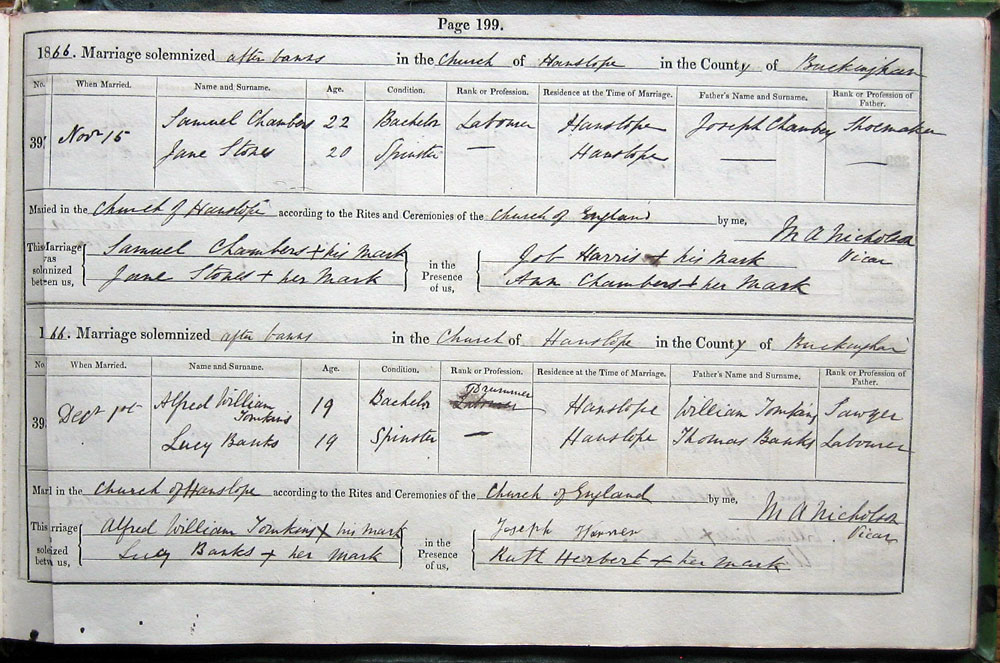 Page 199.
1866. Marriage solemnized after banns in the Church of Hanslope in the County of Buckingham
No. When Married. Name and Surname. Age. Condition. Rank or Profession. Residence at the Time of Marriage. Father's Name and Surname. Rank or Profession of Father.
397 Novr 15 Samuel Chambers 22 Bachelor Labourer Hanslope Joseph Chambers Shoemaker
Jane Stones 20 Spinster — Hanslope — —
Married in the Church of Hanslope according to the Rites and Ceremonies of the Church of England by me,
M A Nicholson
Vicar
This Marriage was solemnized between us, Samuel Chambers + his mark
Jane Stones + her mark
in the Presence of us, Job Harris + his mark
Ann Chambers + her mark
166. Marriage solemnized after banns in the Church of Hanslope in the County of Buckingham
No When Married. Name and Surname. Age. Condition. Rank or Profession. Residence at the Time of Marriage. Father's Name and Surname. Rank or Profession of Father.
39 Decr 1st Alfred William Tomkins 19 Bachelor Drummer Labourer Hanslope William Tomkins Sawyer
Lucy Banks 19 Spinster — Hanslope Thomas Banks Labourer
Mar in the Church of Hanslope according to the Rites and Ceremonies of the Church of England by me,
M A Nicholson
Vicar
This rriage solemnized betw us, Alfred William Tomkins + his mark
Lucy Banks + her mark
in the Presence of us, Joseph
Ruth Herbert + her mark